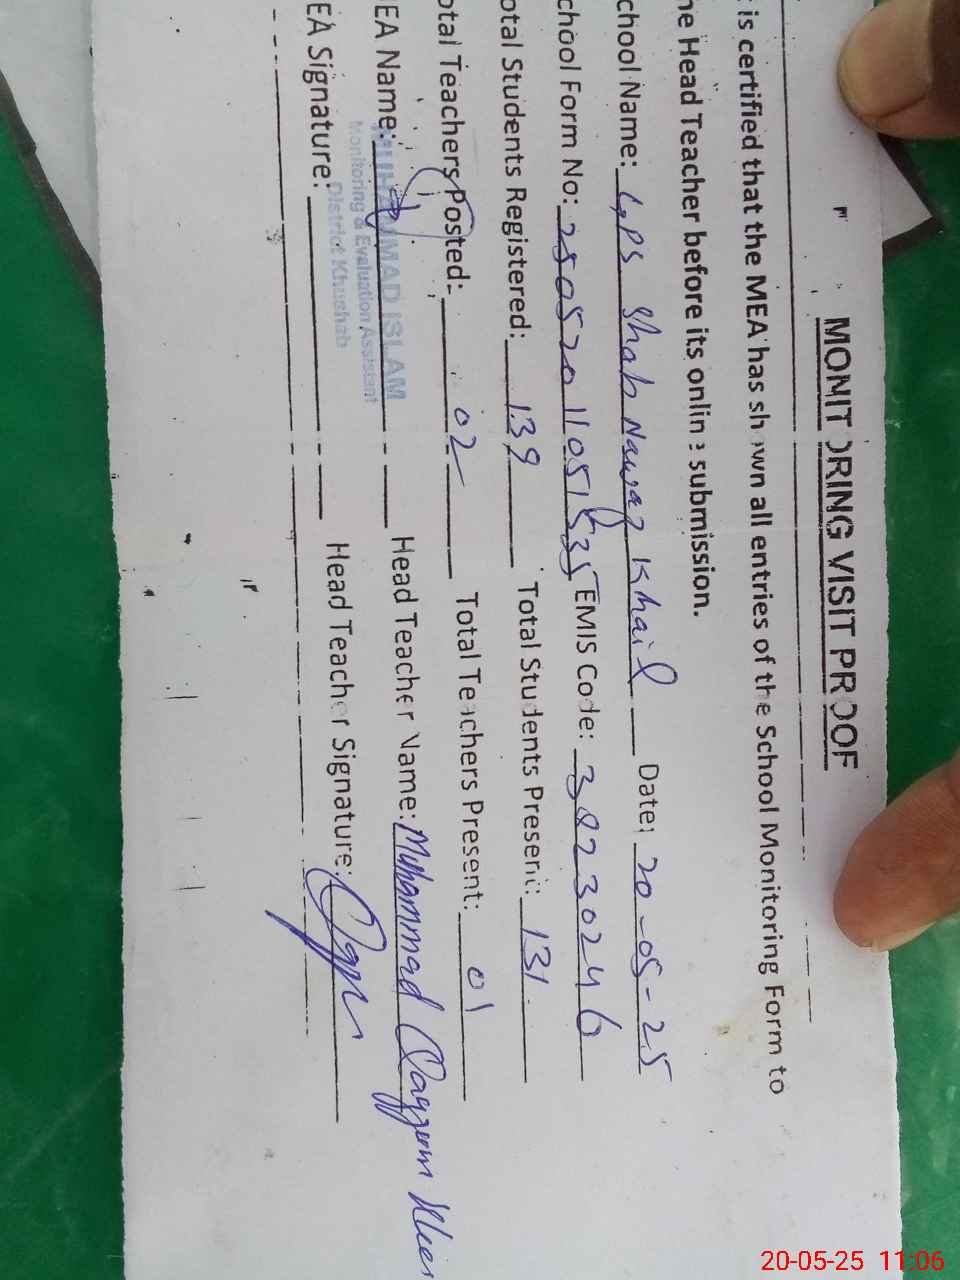 MONITORING VISIT PROOF
is certified that the MEA has shown all entries of the School Monitoring Form to
he Head Teacher before its online submission.
chool Name: GPS Shah Nawaz Khail Date: 20-05-25
chool Form No: EMIS Code: 38230246
otal Students Registered: 139 Total Students Present: 131
otal Teachers Posted: 02 Total Teachers Present: 01
EA Name: Head Teacher Name: Muhammad Qayyum
MUHAMMAD ISLAM
Monitoring & Evaluation Assistant
District Khushab
EA Signature: Head Teacher Signature:
20-05-25 11:06